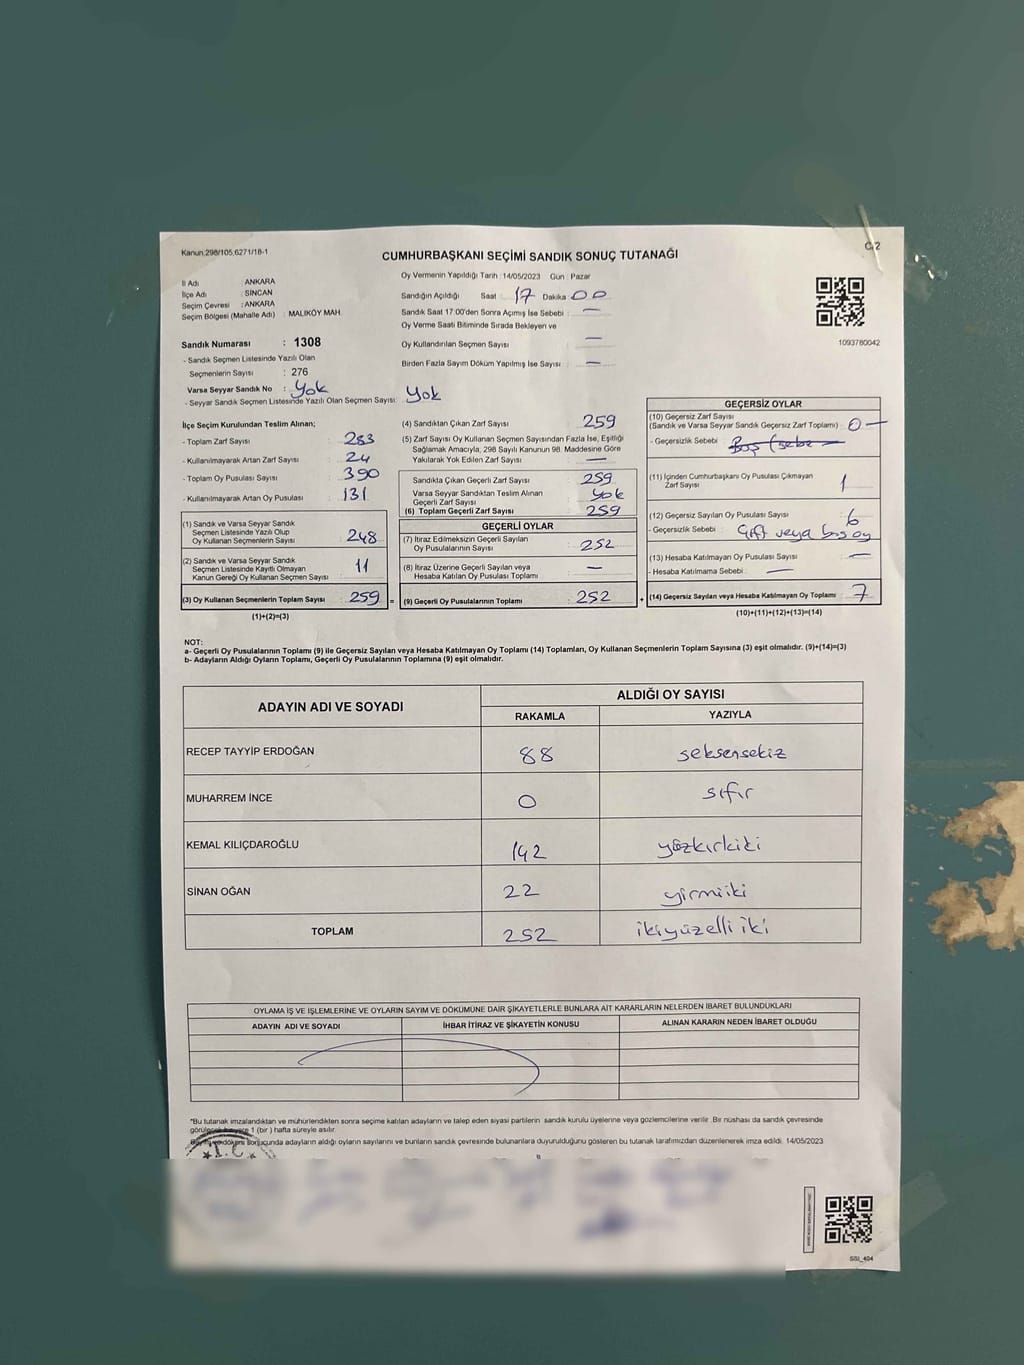 Kanun:298/105,6271/18-1
C-2
CUMHURBAŞKANI SEÇİMİ SANDIK SONUÇ TUTANAĞI
İl Adı : ANKARA
İlçe Adı : SİNCAN
Seçim Çevresi : ANKARA
Seçim Bölgesi (Mahalle Adı) : MALIKÖY MAH.
Sandık Numarası : 1308
- Sandık Seçmen Listesinde Yazılı Olan
Seçmenlerin Sayısı : 276
Varsa Seyyar Sandık No : Yok
- Seyyar Sandık Seçmen Listesinde Yazılı Olan Seçmen Sayısı: Yok
Oy Vermenin Yapıldığı Tarih :14/05/2023 Gün : Pazar
Sandığın Açıldığı Saat : 17 Dakika 00
Sandık Saat 17:00'den Sonra Açımış İse Sebebi : —
Oy Verme Saati Bitiminde Sırada Bekleyen ve
Oy Kullandırılan Seçmen Sayısı : —
Birden Fazla Sayım Döküm Yapılmış İse Sayısı : —
1093780042
İlçe Seçim Kurulundan Teslim Alınan;
- Toplam Zarf Sayısı : 283
- Kullanılmayarak Artan Zarf Sayısı : 24
- Toplam Oy Pusulası Sayısı : 390
- Kullanılmayarak Artan Oy Pusulası : 131
(1) Sandık ve Varsa Seyyar Sandık
Seçmen Listesinde Yazılı Olup
Oy Kullanan Seçmenlerin Sayısı : 248
(2) Sandık ve Varsa Seyyar Sandık
Seçmen Listesinde Kayıtlı Olmayan
Kanun Gereği Oy Kullanan Seçmen Sayısı : 11
(3) Oy Kullanan Seçmenlerin Toplam Sayısı : 259 =
(1)+(2)=(3)
(4) Sandıktan Çıkan Zarf Sayısı : 259
(5) Zarf Sayısı Oy Kullanan Seçmen Sayısından Fazla İse, Eşitliği
Sağlamak Amacıyla, 298 Sayılı Kanunun 98. Maddesine Göre
Yakılarak Yok Edilen Zarf Sayısı : —
Sandıkta Çıkan Geçerli Zarf Sayısı : 259
Varsa Seyyar Sandıktan Teslim Alınan
Geçerli Zarf Sayısı : Yok
(6) Toplam Geçerli Zarf Sayısı : 259
GEÇERLİ OYLAR
(7) İtiraz Edilmeksizin Geçerli Sayılan
Oy Pusulalarının Sayısı : 252
(8) İtiraz Üzerine Geçerli Sayılan veya
Hesaba Katılan Oy Pusulası Toplamı : —
(9) Geçerli Oy Pusulalarının Toplamı : 252 +
GEÇERSİZ OYLAR
(10) Geçersiz Zarf Sayısı
(Sandık ve Varsa Seyyar Sandık Geçersiz Zarf Toplamı) : 0 —
- Geçersizlik Sebebi :
(11) İçinden Cumhurbaşkanı Oy Pusulası Çıkmayan
Zarf Sayısı : 1
(12) Geçersiz Sayılan Oy Pusulası Sayısı : 6
- Geçersizlik Sebebi : Çift veya boş oy
(13) Hesaba Katılmayan Oy Pusulası Sayısı : —
- Hesaba Katılmama Sebebi : —
(14) Geçersiz Sayılan veya Hesaba Katılmayan Oy Toplamı : 7
(10)+(11)+(12)+(13)=(14)
NOT:
a- Geçerli Oy Pusulalarının Toplamı (9) ile Geçersiz Sayılan ve Hesaba Katılmayan Oy Toplamı (14) Toplamları, Oy Kullanan Seçmenlerin Toplam Sayısına (3) eşit olmalıdır. (9)+(14)=(3)
b- Adayların Aldığı Oyların Toplamı, Geçerli Oy Pusulalarının Toplamına (9) eşit olmalıdır.
ADAYIN ADI VE SOYADI
ALDIĞI OY SAYISI
RAKAMLA YAZIYLA
RECEP TAYYİP ERDOĞAN 88 seksensekiz
MUHARREM İNCE 0 sıfır
KEMAL KILIÇDAROĞLU 142 yüzkırkiki
SİNAN OĞAN 22 yirmiiki
TOPLAM 252 ikiyüzelli iki
OYLAMA İŞ VE İŞLEMLERİNE VE OYLARIN SAYIM VE DÖKÜMÜNE DAİR ŞİKAYETLERLE BUNLARA AİT KARARLARIN NELERDEN İBARET BULUNDUKLARI
ADAYIN ADI VE SOYADI İHBAR İTİRAZ VE ŞİKAYETİN KONUSU ALINAN KARARIN NEDEN İBARET OLDUĞU
*Bu tutanak imzalandıktan ve mühürlendikten sonra seçime katılan adayların ve talep eden siyasi partilerin sandık kurulu üyelerine veya gözlemcilerine verilir. Bir nüshası da sandık çevresinde
1 (bir ) hafta süreyle asılır.
sonucunda adayların aldığı oyların sayılarını ve bunların sandık çevresinde bulunanlara duyurulduğunu gösteren bu tutanak tarafımızdan düzenlenerek imza edildi. 14/05/2023
T.C.
SSI_404